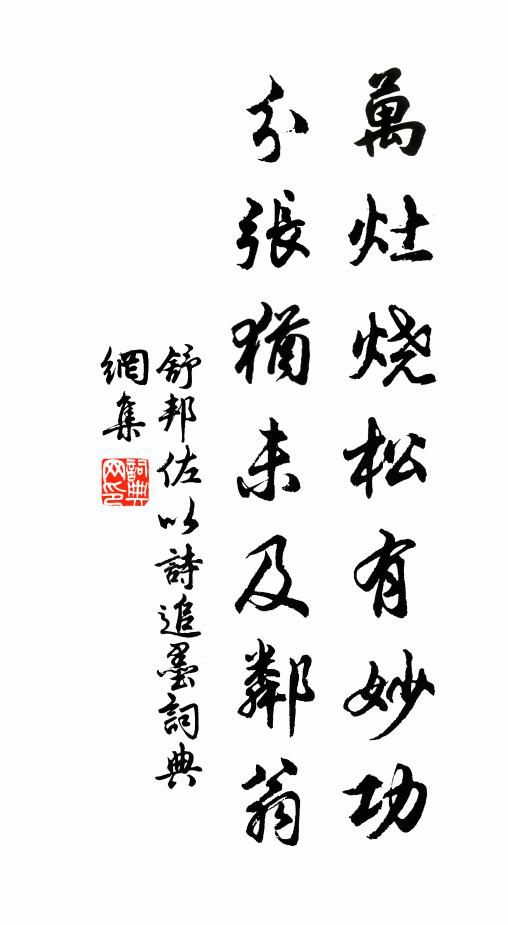 萬灶燒松有妙功
分張猶未及鄰翁
舒邦佐以詩追墨詞典
網集
詞典網印